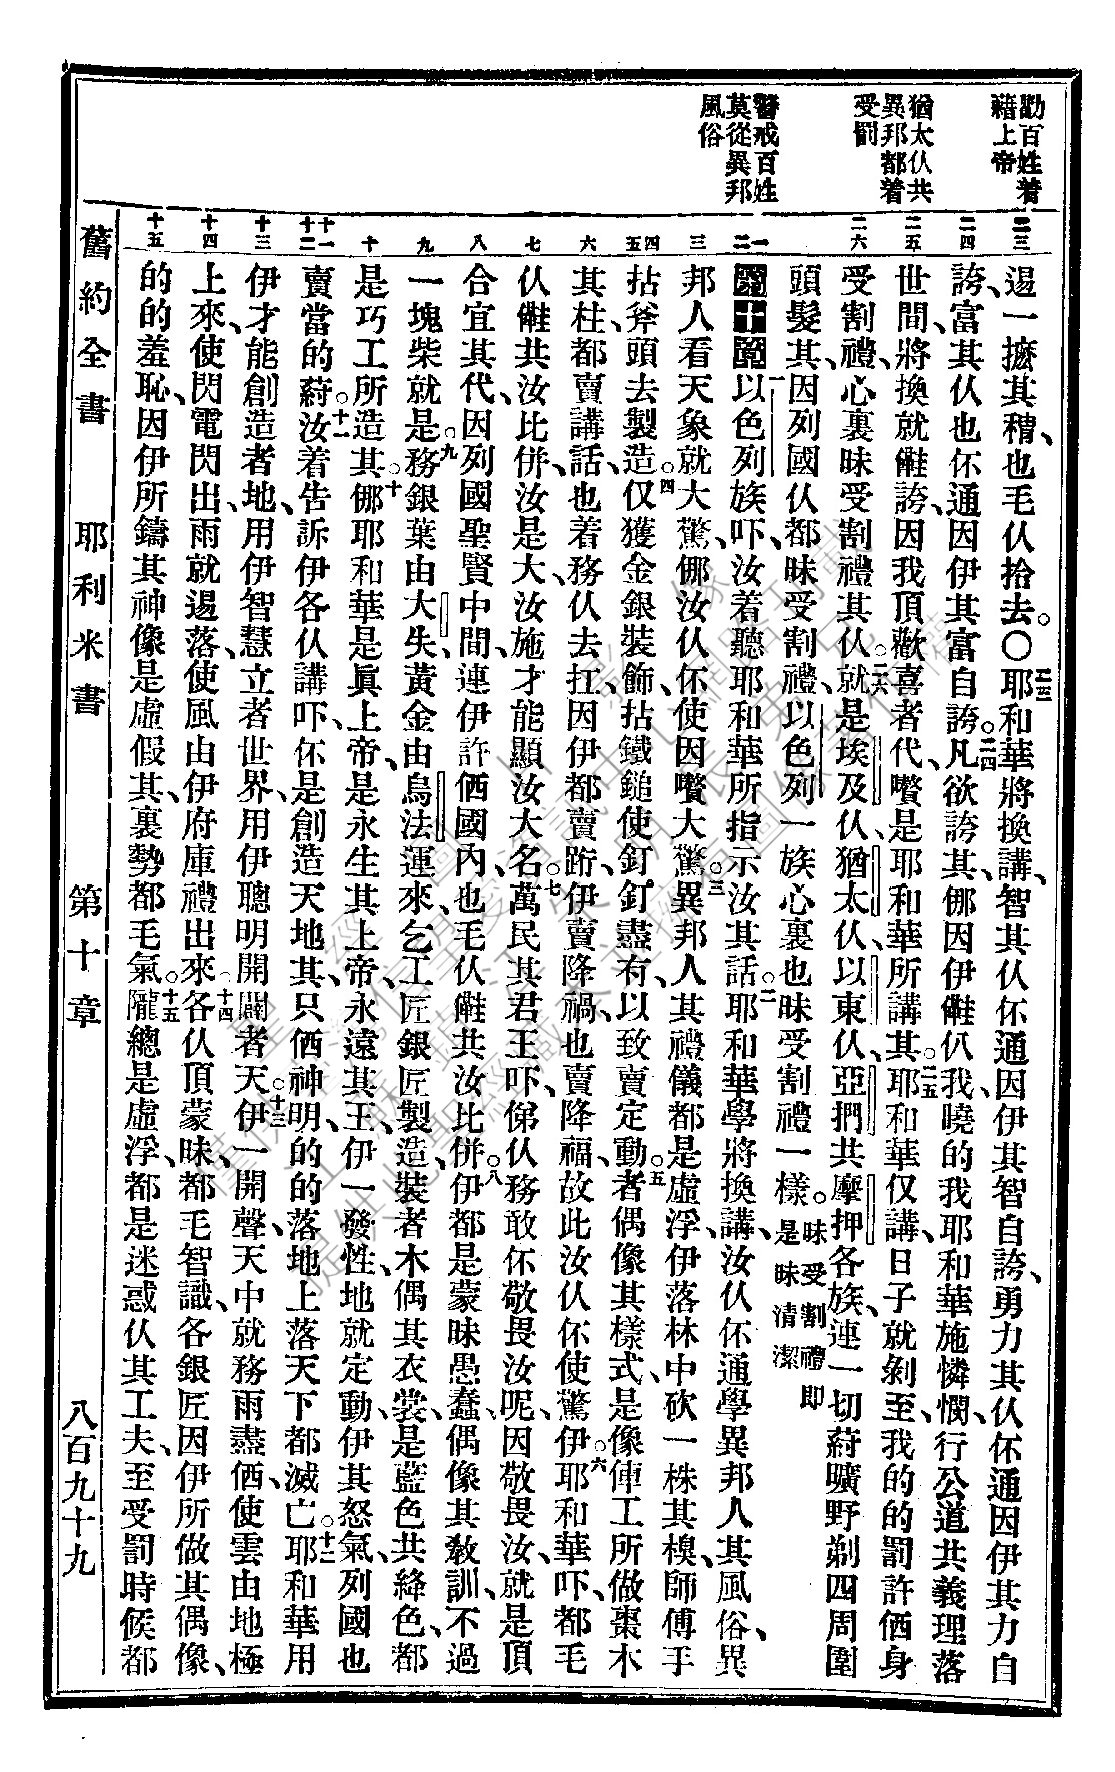 勸百姓着
藉上帝
猶太仫共
異邦都着
受罰
警戒百姓
莫從異邦
風俗
二三
二四
二五
二六
一二
三
四五
六
七
八
九
十
十一十二
十三
十四
十五
逿一搋其䆁、也毛仫拾去。〇二三耶和華將換講、智其仫伓通因伊其智自誇、勇力其仫伓通因伊其力自
誇、富其仫也伓通因伊其富自誇。二四凡欲誇其、㑚因伊㒁仈我曉的我耶和華施憐憫、行公道共義理落
世間、將換就㒁誇、因我頂歡喜者代、囋是耶和華所講其。二五耶和華仅講、日子就剝至、我的的罰許㑚身
受割禮、心裏昧受割禮其仫。二六就是埃及仫、猶太仫、以東仫、亞捫共摩押各族、連一切䔟曠野剃四周圍
頭髮其、因列國仫都昧受割禮、以色列一族心裏也昧受割禮一樣。昧受割禮卽是昧清潔
第十章一以色列族吓、汝着聽耶和華所指示汝其話。二耶和華學將換講、汝仫伓通學異邦人其風俗、異
邦人看天象就大驚、㑚汝仫伓使因囋大驚。三異邦人其禮儀都是虛浮、伊落林中砍一株其模、師傅手
拈斧頭去製造。四仅獲金銀裝飾、拈鐵鎚使釘釘盡有、以致賣定動。五者偶像其樣式、是像俥工所做棗木
其柱、都賣講話、也着務仫去扛、因伊都賣跡、伊賣降禍、也賣降福、故此汝仫伓使驚伊。六耶和華吓、都毛
仫㒁共汝比併、汝是大、汝施才能顯汝大名。七萬民其君王吓、俤仫務敢伓敬畏汝呢、因敬畏汝、就是頂
合宜其代、因列國聖賢中間、連伊許㑚國內、也毛仫㒁共汝比併。八伊都是蒙昧愚蠢、偶像其敎訓、不過
一塊柴就是。九務銀葉由大失、黃金由烏法運來、乞工匠銀匠製造、裝者木偶其衣裳、是藍色共絳色、都
是巧工所造其。十㑚耶和華是眞上帝、是永生其上帝、永遠其王、伊一發性、地就定動、伊其怒氣、列國也
賣當的䔟。十一汝着告訴伊各仫講吓、伓是創造天地其、只㑚神明、的的落地上落天下都滅亡。十二耶和華用
伊才能創造者地、用伊智慧立者世界、用伊聰明開闢者天。十三伊一開聲、天中就務雨盡㑚、使雲由地極
上來、使閃電閃出、雨就逿落、使風由伊府庫禮出來。十四各仫頂蒙昧、都毛智識、各銀匠因伊所做其偶像、
的的羞恥、因伊所鑄其神像是虛假其、裏勢都毛氣。十五隴總是虛浮、都是迷惑仫其工夫、至受罰時候都
舊約全書　耶利米書　第十章　八百九十九